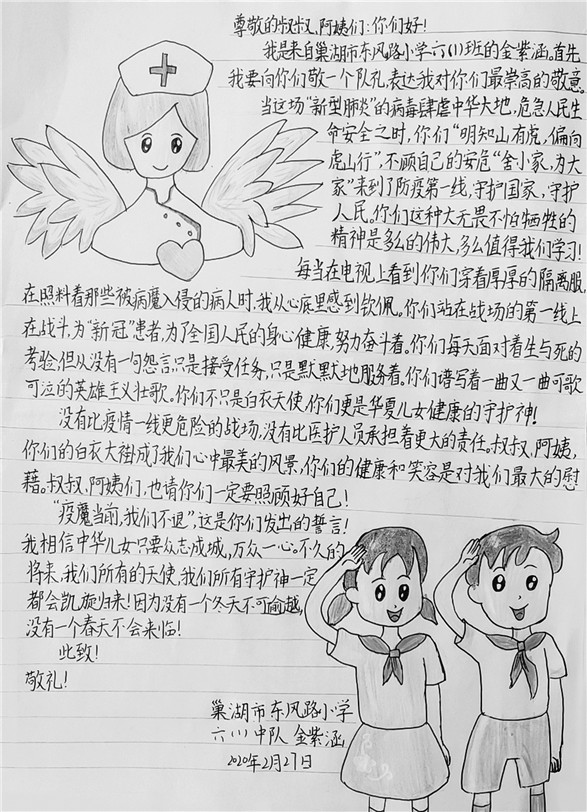 尊敬的叔叔、阿姨们:你们好!
我是来自巢湖市东风路小学六(1)班的金紫涵,首先
我要向你们敬一个队礼,表达我对你们最崇高的敬意。
当这场“新型肺炎”的病毒肆虐中华大地,危急人民生
命安全之时,你们“明知山有虎,偏向
虎山行”,不顾自己的安危“舍小家,为大
家”来到了防疫第一线,守护国家,守护
人民。你们这种大无畏不怕牺牲的
精神是多么的伟大,多么值得我们学习!
每当在电视上看到你们穿着厚厚的隔离服,
在照料着那些被病魔入侵的病人时,我从心底里感到钦佩。你们站在战场的第一线上
在战斗,为“新冠”患者,为了全国人民的身心健康,努力奋斗着。你们每天面对着生与死的
考验,但从没有一句怨言,只是接受任务,只是默默地服务着。你们谱写着一曲又一曲可歌
可泣的英雄主义壮歌。你们不只是白衣天使,你们更是华夏儿女健康的守护神!
没有比疫情一线更危险的战场,没有比医护人员承担着更大的责任。叔叔、阿姨,
你们的白衣大褂成了我们心中最美的风景,你们的健康和笑容是对我们最大的慰
藉。叔叔、阿姨们,也请你们一定要照顾好自己!
“疫魔当前,我们不退”,这是你们发出的誓言!
我相信中华儿女只要众志成城,万众一心。不久的
将来,我们所有的天使,我们所有守护神一定
都会凯旋归来!因为没有一个冬天不可逾越,
没有一个春天不会来临!
此致!
敬礼!
巢湖市东风路小学
六(1)中队 金紫涵
2020年2月27日